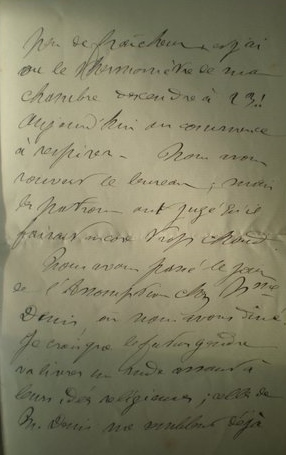 peu de fraîcheur et j'ai
vu le thermomètre de ma
chambre descendre à 23!!
Aujourd'hui on commence
à respirer. Nous avons
rouvert le bureau, mais
les patrons ont jugé qu'il
faisait encore trop chaud
Nous avons passé le jour
de l'Assomption chez Mme
Denis où nous avons dîné.
Je crains que le futur gendre
va livrer un rude assaut à
leurs idées religieuses; celles de
M. Denis me semblent déjà